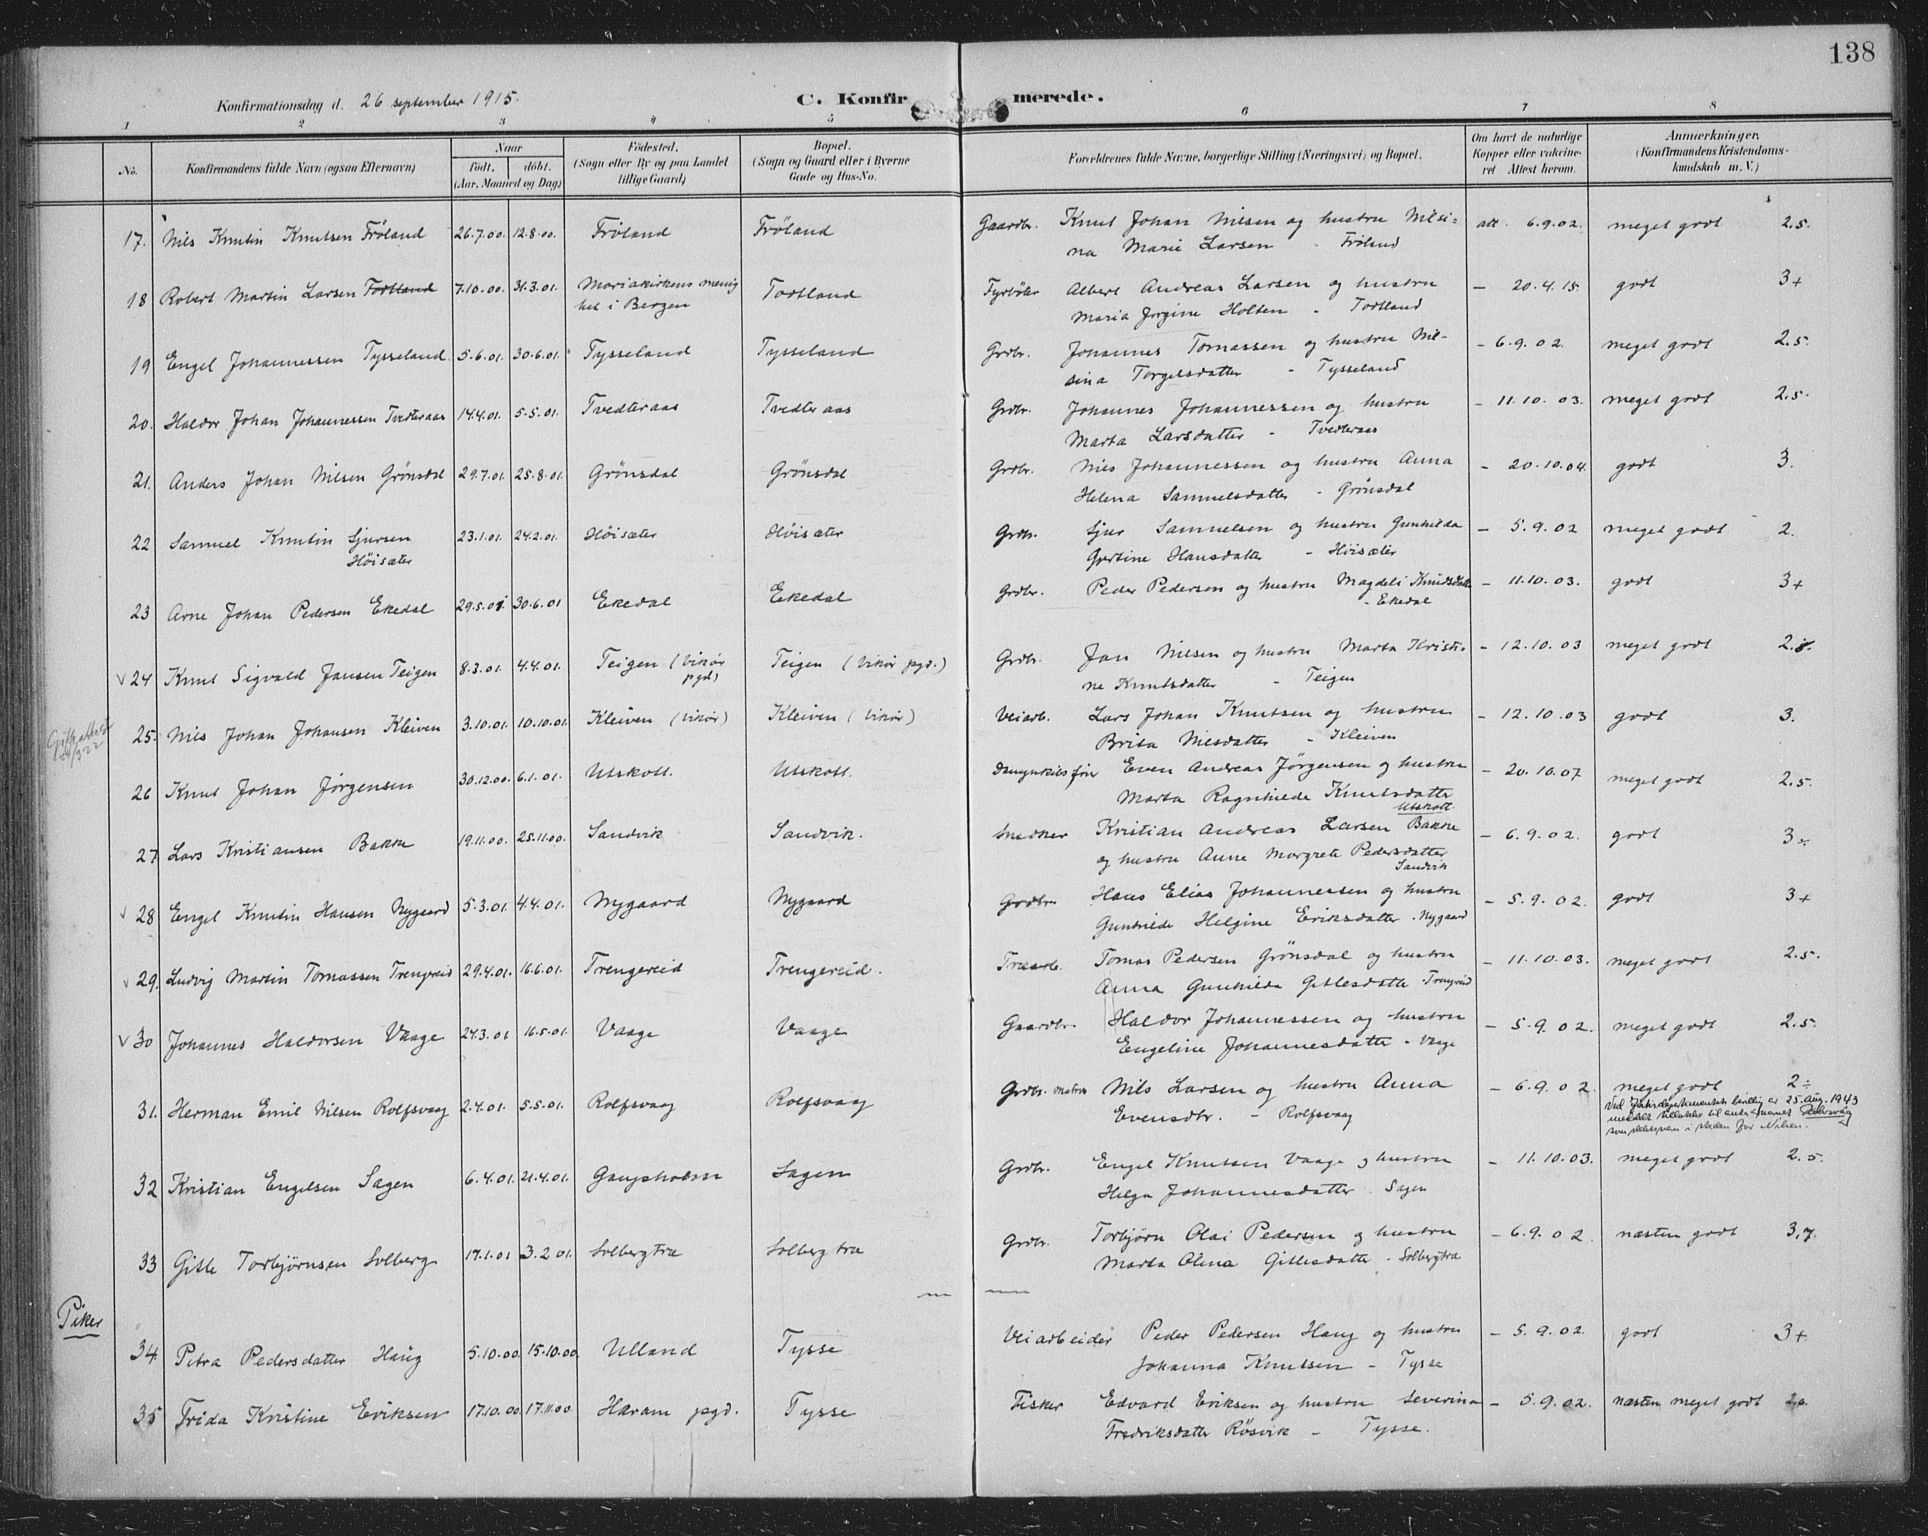 138
Konfirmationsdag d. 26 september 1915.
C. Konfirmerede.
1 2 3 4 5 6 7 8
No.
Konfirmandens fulde Navn (ogsaa Efternavn)
Naar
født. døbt.
(Aar, Maaned og Dag)
Fødested.
(Sogn eller By og paa Landet
tillige Gaard)
Bopæl.
(Sogn og Gaard eller i Byerne
Gade og Hus-No.
Forældrenes fulde Navne, borgerlige Stilling (Næringsvei) og Bopæl.
Om havt de naturlige
Kopper eller vakcine-
ret Attest herom.
Anmærkninger.
(Konfirmandens Kristendoms-
kundskab m. V.)
17. Nils Knutin Knutsen Frøland 26.7.00. 12.8.00. Frøland Frøland Gaardbr. Knut Johan Nilsen og hustru Nilsi= att. 6.9.02. meget godt 2.5.
na Marie Larsen - Frøland
18 Robert Martin Larsen Tortland 7.10.00. 31.3.01. Mariakirkens menig Tortland Fyrbøter Albert Andreas Larsen og hustru - 20.4.15. godt 3+
het i Bergen Maria Jørgine Holten - Tortland
19 Engel Johannessen Tysseland 5.6.01. 30.6.01. Tysseland Tysseland Grdbr. Johannes Tomassen og hustru Nil- - 6.9.02. meget godt 2.5.
sina Torgelsdatter - Tysseland
20. Haldor Johan Johannessen Tvedteraas 14.4.01. 5.5.01. Tvedteraas Tvedteraas Grdbr. Johannes Johannessen og hustru - 11.10.03. meget godt 2.5.
Marta Larsdatter - Tvedteraas
21. Anders Johan Nilsen Grønsdal 29.7.01. 25.8.01. Grønsdal Grønsdal Grdbr. Nils Johannessen og hustru Anna - 20.10.04. godt 3.
Helena Samuelsdatter - Grønsdal
22 Samuel Knutin Sjursen 23.1.01. 24.2.01. Høisæter Høisæter Grdbr. Sjur Samuelsen og hustru Gunhilda - 5.9.02 meget godt 2.
Høisæter Gjertine Hansdatter - Høisæter
23 Arne Johan Pedersen Ekedal 29.5.01 30.6.01 Ekedal Ekedal Grdbr. Peder Pedersen og hustru Magdeli Knudsdatter - 11.10.03. godt 3+
- Ekedal
24 Knut Sigvald Jansen Teigen 8.3.01. 4.4.01. Teigen (Vikør Teigen (Vikør pgd.) Grdbr. Jan Nilsen og hustru Marta Kristi= - 12.10.03 meget godt
pgd) ne Knutsdatter - Teigen
25. Nils Johan Johansen Kleiven 3.10.01. 10.10.01. Kleiven (Vikør) Kleiven (Vikør) Veiarb. Lars Johan Knutsen og hustru - 12.10.03 godt 3.
Brita Nilsdatter - Kleiven
26 Knut Johan Jørgensen 30.12.00. 6.1.01. Utskott. Utskott. Even Andreas Jørgensen og hustru - 20.10.07. meget godt 2.5.
Marta Ragnhilde Knutsdatter
Utskott
27 Lars Kristiansen Bakke 19.11.00. 25.11.00. Sandvik Sandvik. Snedker Kristian Andreas Larsen Bakke - 6.9.02. godt
og hustru Anne Margrete Pedersdatter
Sandvik
28 Engel Knutin Hansen Nygaard 5.3.01. 4.4.01. Nygaard Nygaard Grdbr. Hans Elias Johannessen og hustru - 5.9.02. godt 3+
Gunhilde Helgine Eriksdatter - Nygaard
29. Ludvig Martin Tomassen Trengereid 29.4.01. 16.6.01. Trengereid Trengereid. Træarb. Tomas Pedersen Grønsdal og hustru - 11.10.03. meget godt 2.5.
Anna Gunhilda Gitlesdatter - Trengereid
30 Johannes Haldorsen Vaage 24.3.01 16.5.01. Vaage Vaage Gaardbr. Haldor Johannessen og hustru - 5.9.02. meget godt 2.5.
Engeline Johannesdatter - Vaage
31. Herman Emil Nilsen Rolfsvaag 2.4.01. 5.5.01. Rolfsvaag Rolfsvaag Grdbr. matros Nils Larsen og hustru Anna - 6.9.02. meget godt
Evensdtr. - Rolfsvaag
32 Kristian Engelsen Sagen 6.4.01. 21.4.01. Gaupholm Sagen Grdbr. Engel Knutsen Vaage og hustru - 11.10.03. meget godt 2.5
Helga Johannesdatter Sagen
33 Gitle Torbjørnsen Solberg 17.1.01 3.2.01. Solbergtræ Solbergtræ Grdbr. Torbjørn Olai Pedersen og hustru - 6.9.02. næsten godt 3,7.
Marta Olina Gitlesdatter - Solbergtræ
Piker
34. Petra Pedersdatter Haug 5.10.00. 15.10.00. Ulland Tysse Veiarbeider Peder Pedersen Haug og hustru - 5.9.02. godt 3+
Johanna Knutsen - Tysse
35 Frida Kristine Eriksen 17.10.00. 17.11.00 Haram pgd. Tysse Fisker Edvard Eriksen og hustru Severina - 5.9.02. næsten meget godt
Fredriksdatter Røsvik - Tysse.